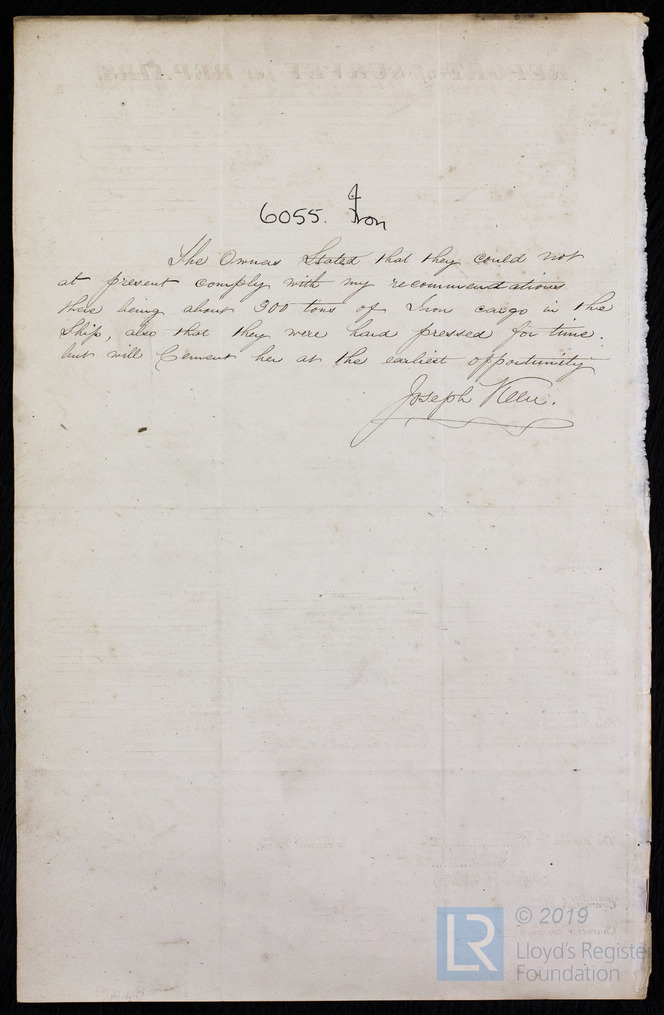 REPORT of SURVEY for REPAIRS.
6055. Iron
The Owners Stated that they could not
at present comply with my recommendations
there being about 300 tons of Iron cargo in the
Ship, also that they were hard pressed for time.
but will Cement her at the earliest opportunity
Joseph
LR
© 2019
Lloyd's Register
Foundation